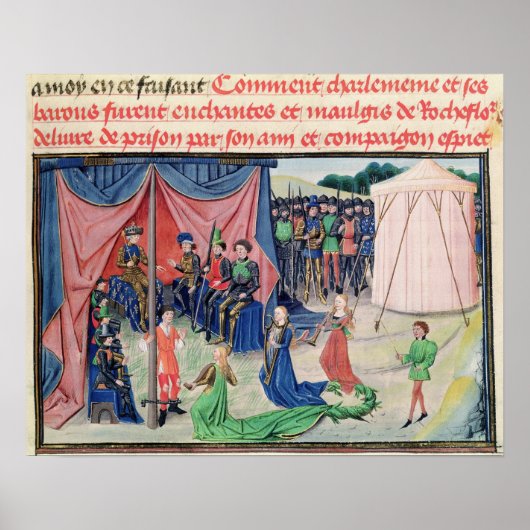 amoy en ce faisant Comment charlemeine et ses
barons furent enchantes et maulgis de Rocheflor
deliure de prison par son amy et compaignon espiet